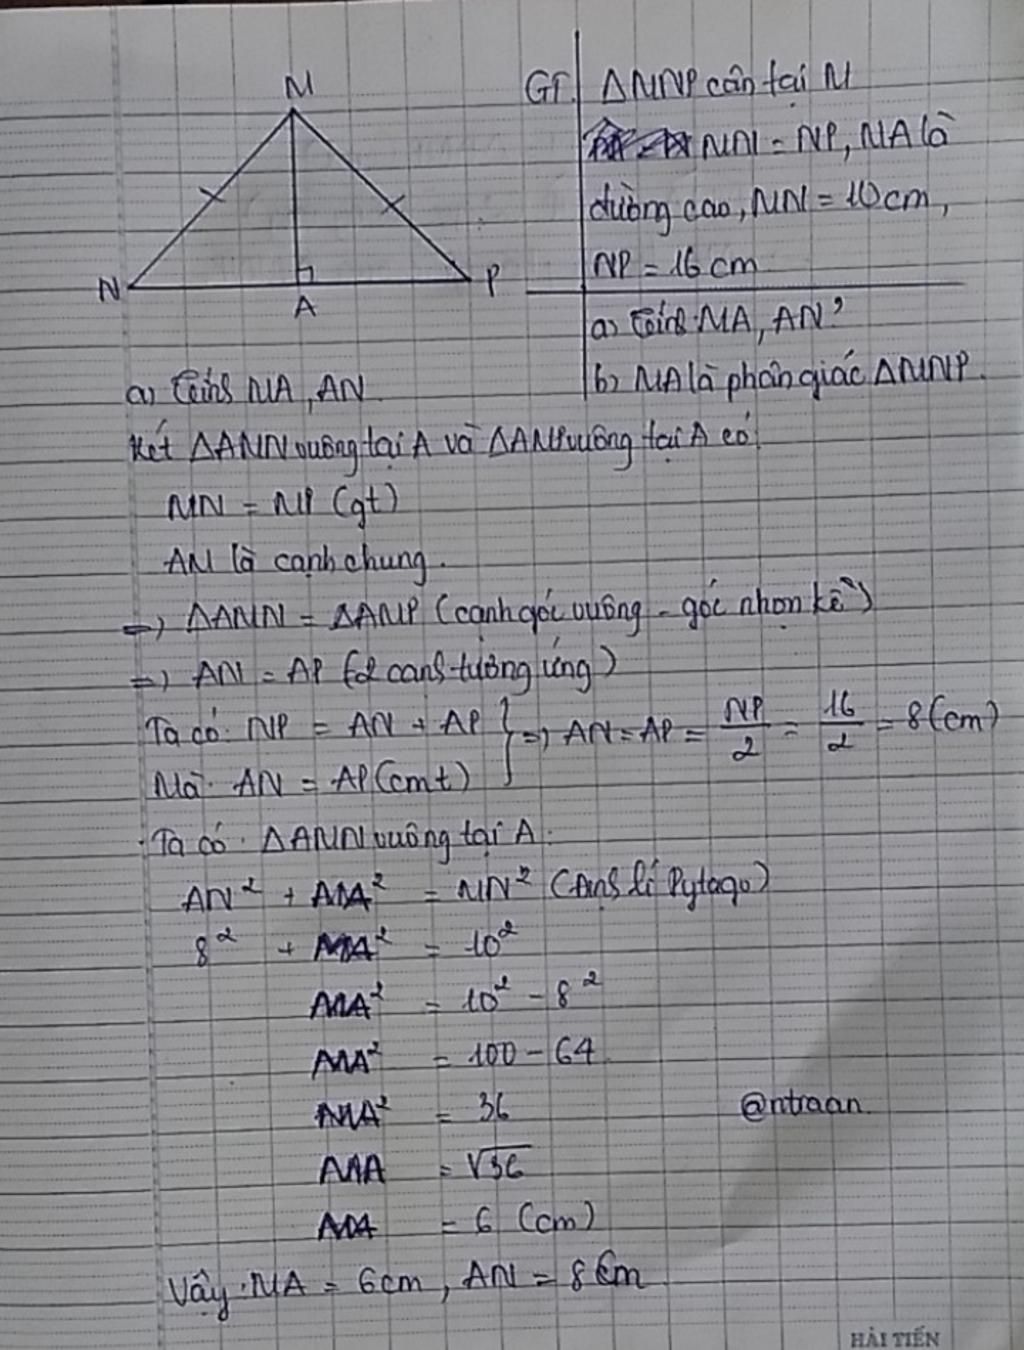 M
N
A
P
GT ΔMNP cân tại M
MN = MP, MA là
đường cao, MN = 10cm,
NP = 16 cm
a) Tính MA, AN?
b) MA là phân giác ΔMNP.
a) Tính MA, AN
Xét ΔAMN vuông tại A và ΔAMP vuông tại A có:
MN = MP (gt)
AM là cạnh chung.
=> ΔAMN = ΔAMP (cạnh góc vuông - góc nhọn kề)
=> AN = AP (2 cạnh tương ứng)
Ta có: NP = AN + AP
Mà: AN = AP (cmt)
} => AN = AP = NP/2 = 16/2 = 8 (cm)
Ta có: ΔAMN vuông tại A:
AN² + MA² = MN² (Định lí Pytago)
8² + MA² = 10²
MA² = 10² - 8²
MA² = 100 - 64
MA² = 36
@ntraan
MA = √36
MA = 6 (cm)
Vậy: MA = 6cm, AN = 8cm
HẢI TIẾN